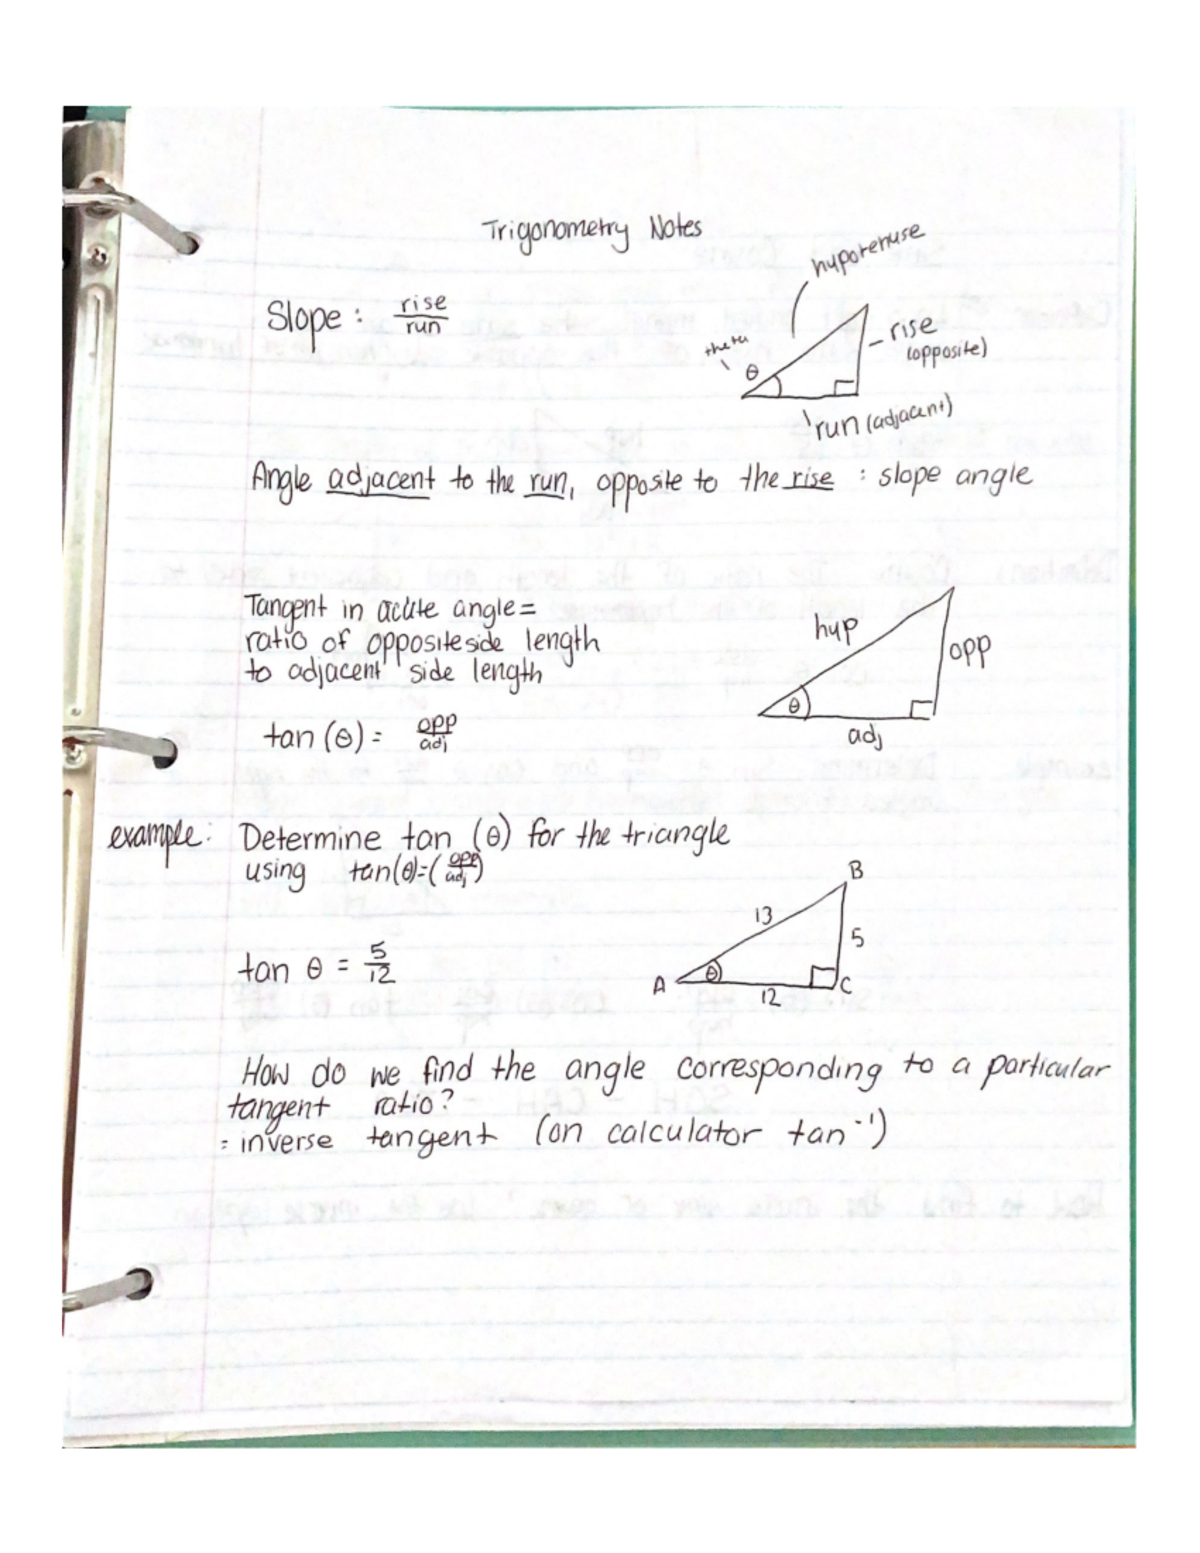 Trigonometry Notes
hypotenuse
Slope: rise/run
theta
θ
rise
(opposite)
run (adjacent)
Angle adjacent to the run, opposite to the rise : slope angle
Tangent in acute angle=
ratio of opposite side length
to adjacent side length
hyp
opp
θ
adj
tan (θ) = opp/adj
example: Determine tan (θ) for the triangle
using tan(θ)=(opp/adj)
B
13
5
tan θ = 5/12
A
θ
C
12
How do we find the angle corresponding to a particular
tangent ratio?
= inverse tangent (on calculator tan⁻¹)